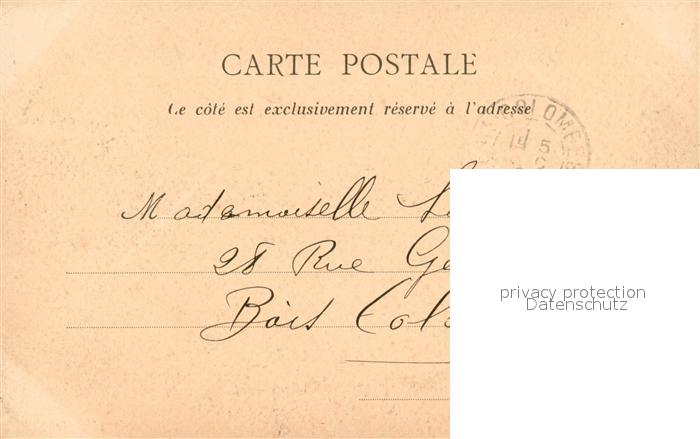 CARTE POSTALE
Ce côté est exclusivement réservé à l'adresse
Mademoiselle
28 Rue
Bois
privacy protection
Datenschutz